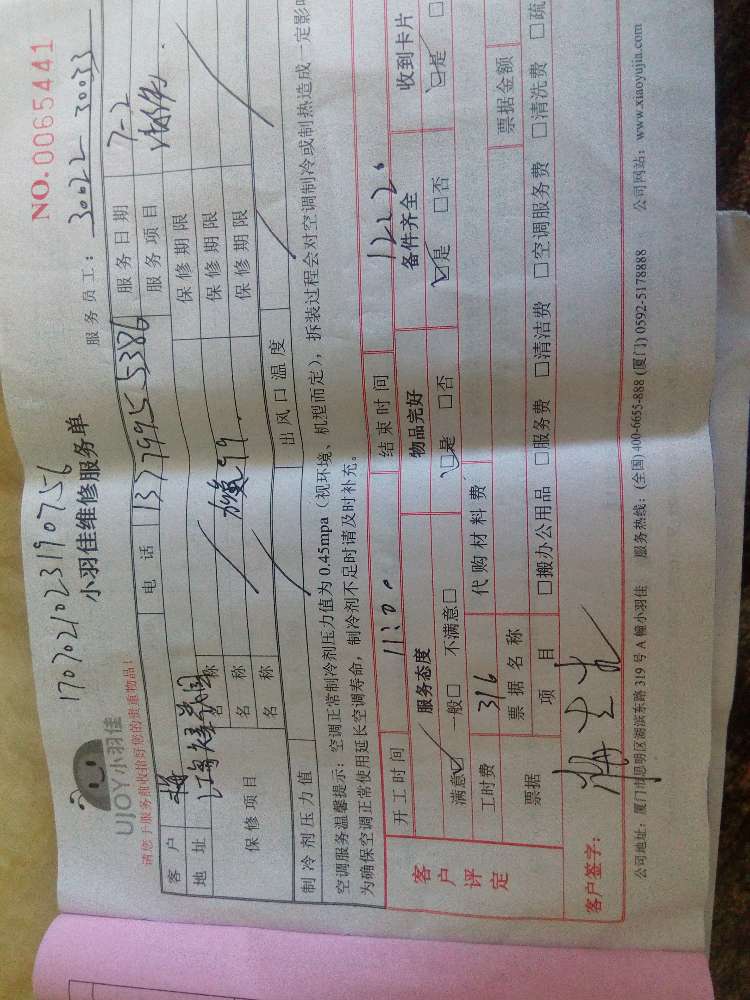 17070210231907​56
NO.0065441
UJOY小羽佳
小羽佳维修服务单
请您于服务前收拾好您的贵重物品！
服务员工：30022 30033
客户 电话 13779955386 服务日期 7-2
地址 服务项目
保修项目 名称 保修期限
名称 保修期限
名称 保修期限
制冷剂压力值 出风口温度
空调服务温馨提示：空调正常制冷剂压力值为0.45mpa（视环境、机型而定），拆装过程会对空调制冷或制热造成一定影
为确保空调正常使用延长空调寿命，制冷剂不足时请及时补充。
客户评定
开工时间 1130 结束时间 1222
服务态度 物品完好 备件齐全 收到卡片
满意☑ 一般□ 不满意□ ☑是 □否 ☑是 □否 ☑是 □
工时费 316 代购材料费
票据 票据名称 票据金额
项目 □搬办公用品 □服务费 □清洁费 □空调服务费 □清洗费 □疏
客户签字：
公司地址：厦门市思明区湖滨东路319号A幢小羽佳 服务热线：(全国)400-6655-888 (厦门) 0592-5178888 公司网站：www.xiaoyujia.com